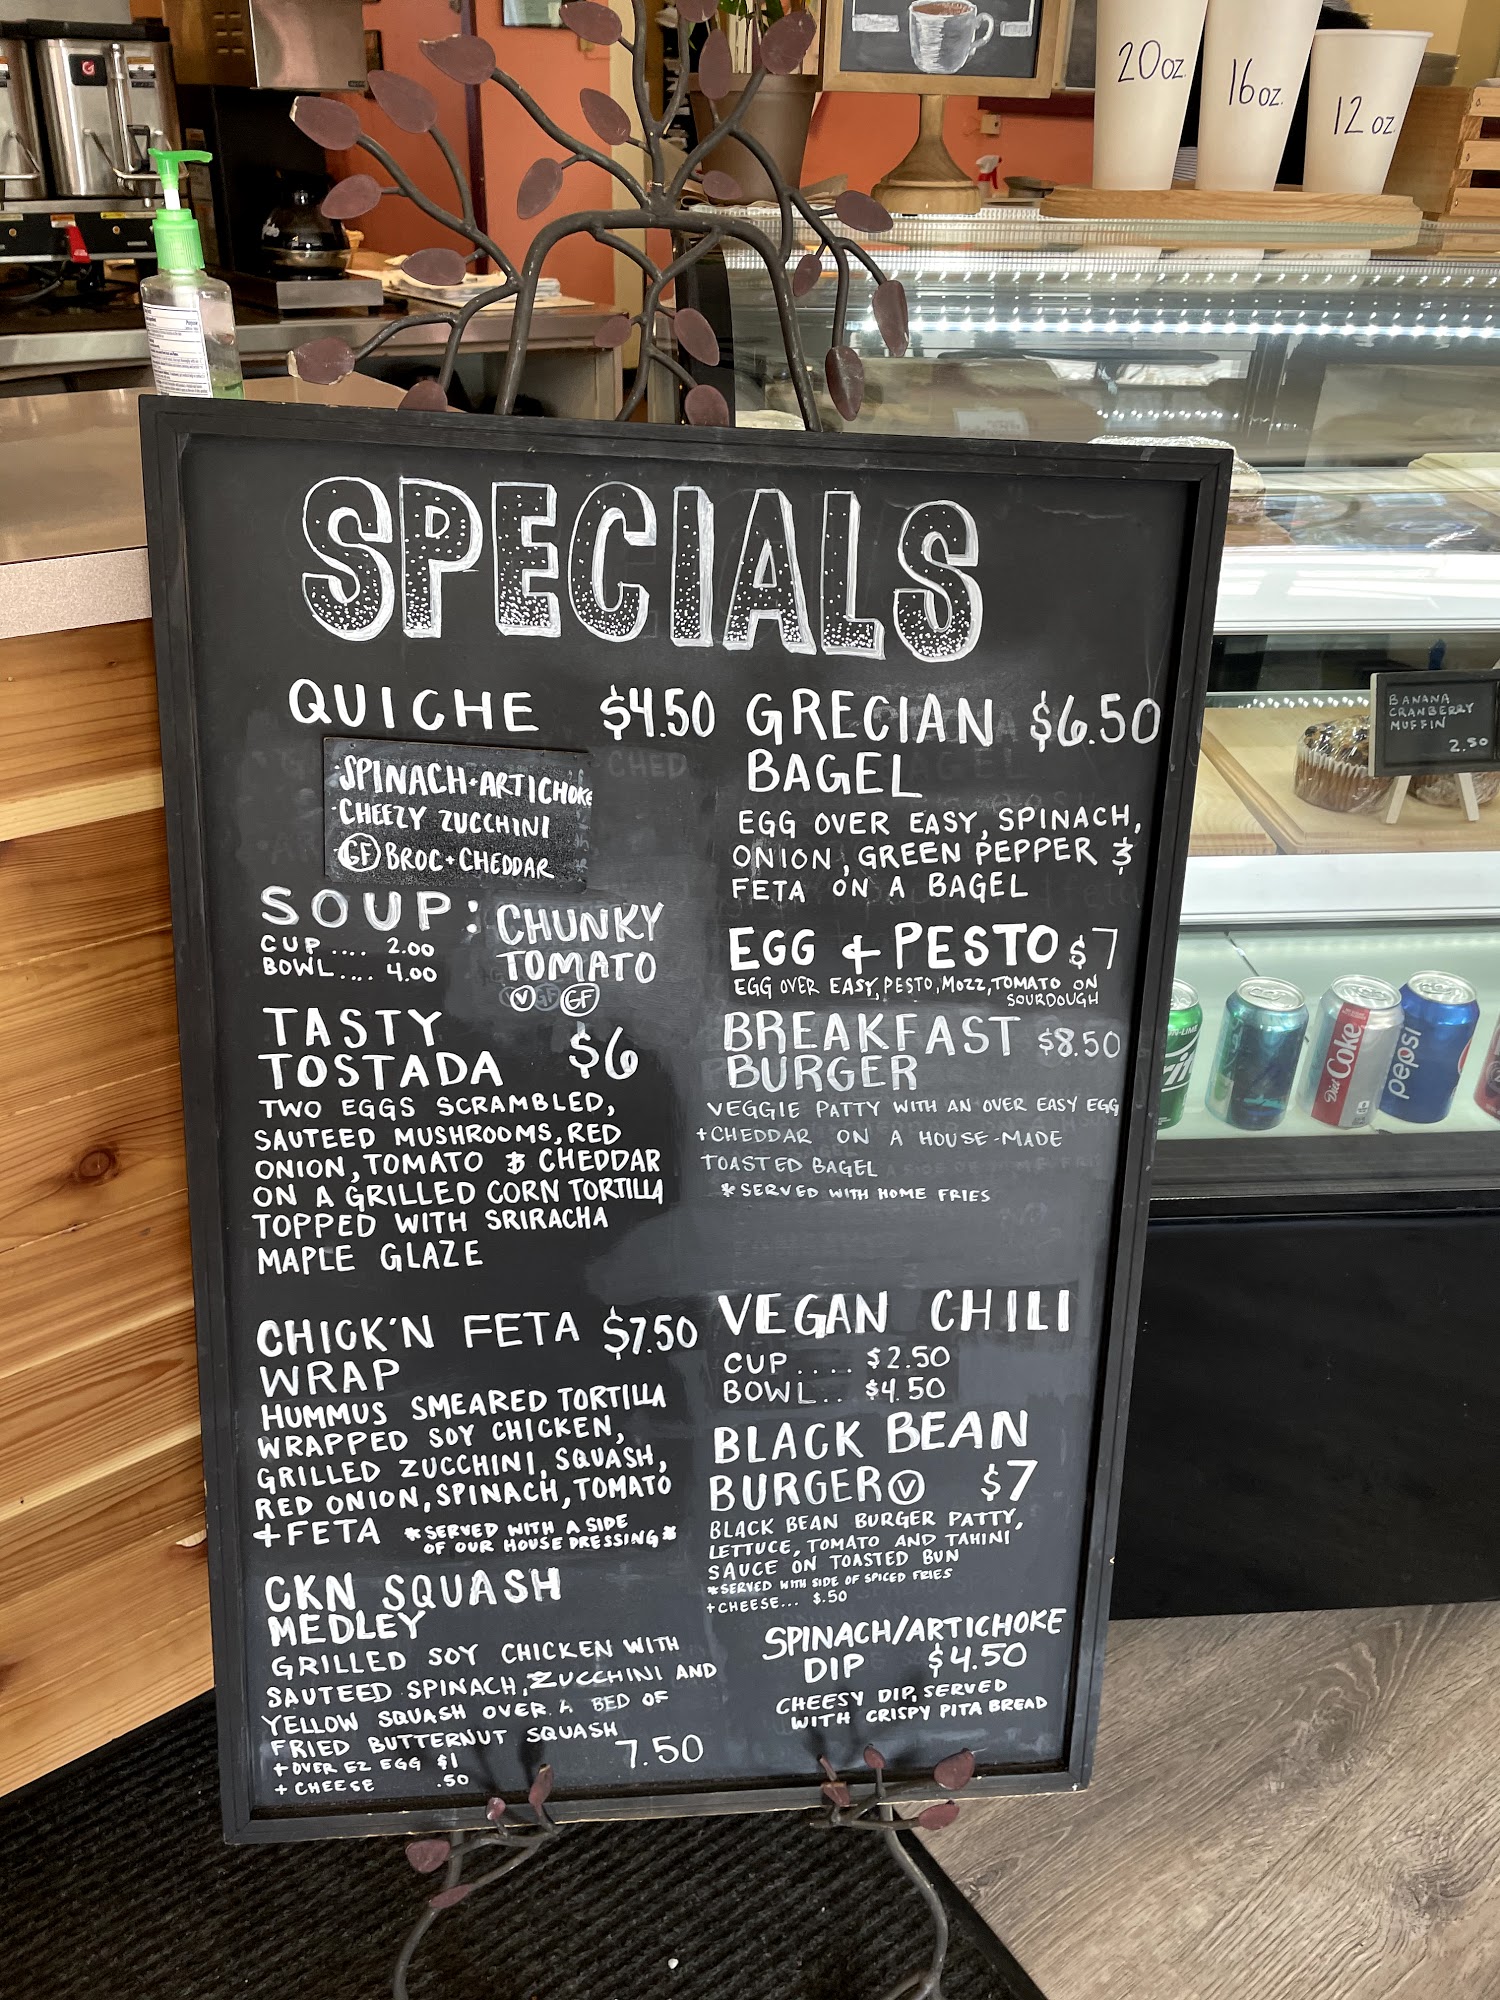 20 oz.
16 oz.
12 oz
SPECIALS
QUICHE $4.50
·SPINACH+ARTICHOKE
·CHEEZY ZUCCHINI
·GF BROC+CHEDDAR
SOUP: CHUNKY
TOMATO
V GF
CUP.... 2.00
BOWL.... 4.00
TASTY
TOSTADA $6
TWO EGGS SCRAMBLED,
SAUTEED MUSHROOMS, RED
ONION, TOMATO & CHEDDAR
ON A GRILLED CORN TORTILLA
TOPPED WITH SRIRACHA
MAPLE GLAZE
CHICK'N FETA $7.50
WRAP
HUMMUS SMEARED TORTILLA
WRAPPED SOY CHICKEN,
GRILLED ZUCCHINI, SQUASH,
RED ONION, SPINACH, TOMATO
+FETA *SERVED WITH A SIDE
OF OUR HOUSE DRESSING*
CKN SQUASH
MEDLEY
GRILLED SOY CHICKEN WITH
SAUTEED SPINACH, ZUCCHINI AND
YELLOW SQUASH OVER A BED OF
FRIED BUTTERNUT SQUASH
+OVER EZ EGG $1 7.50
+ CHEESE .50
GRECIAN $6.50
BAGEL
EGG OVER EASY, SPINACH,
ONION, GREEN PEPPER &
FETA ON A BAGEL
EGG + PESTO $7
EGG OVER EASY, PESTO, MOZZ, TOMATO ON
SOURDOUGH
BREAKFAST $8.50
BURGER
VEGGIE PATTY WITH AN OVER EASY EGG
+CHEDDAR ON A HOUSE-MADE
TOASTED BAGEL
*SERVED WITH HOME FRIES
VEGAN CHILI
CUP.... $2.50
BOWL.. $4.50
BLACK BEAN
BURGER V $7
BLACK BEAN BURGER PATTY,
LETTUCE, TOMATO AND TAHINI
SAUCE ON TOASTED BUN
*SERVED WITH SIDE OF SPICED FRIES
+CHEESE... $.50
SPINACH/ARTICHOKE
DIP $4.50
CHEESY DIP, SERVED
WITH CRISPY PITA BREAD
BANANA
CRANBERRY
MUFFIN
2.50
Diet Coke
pepsi